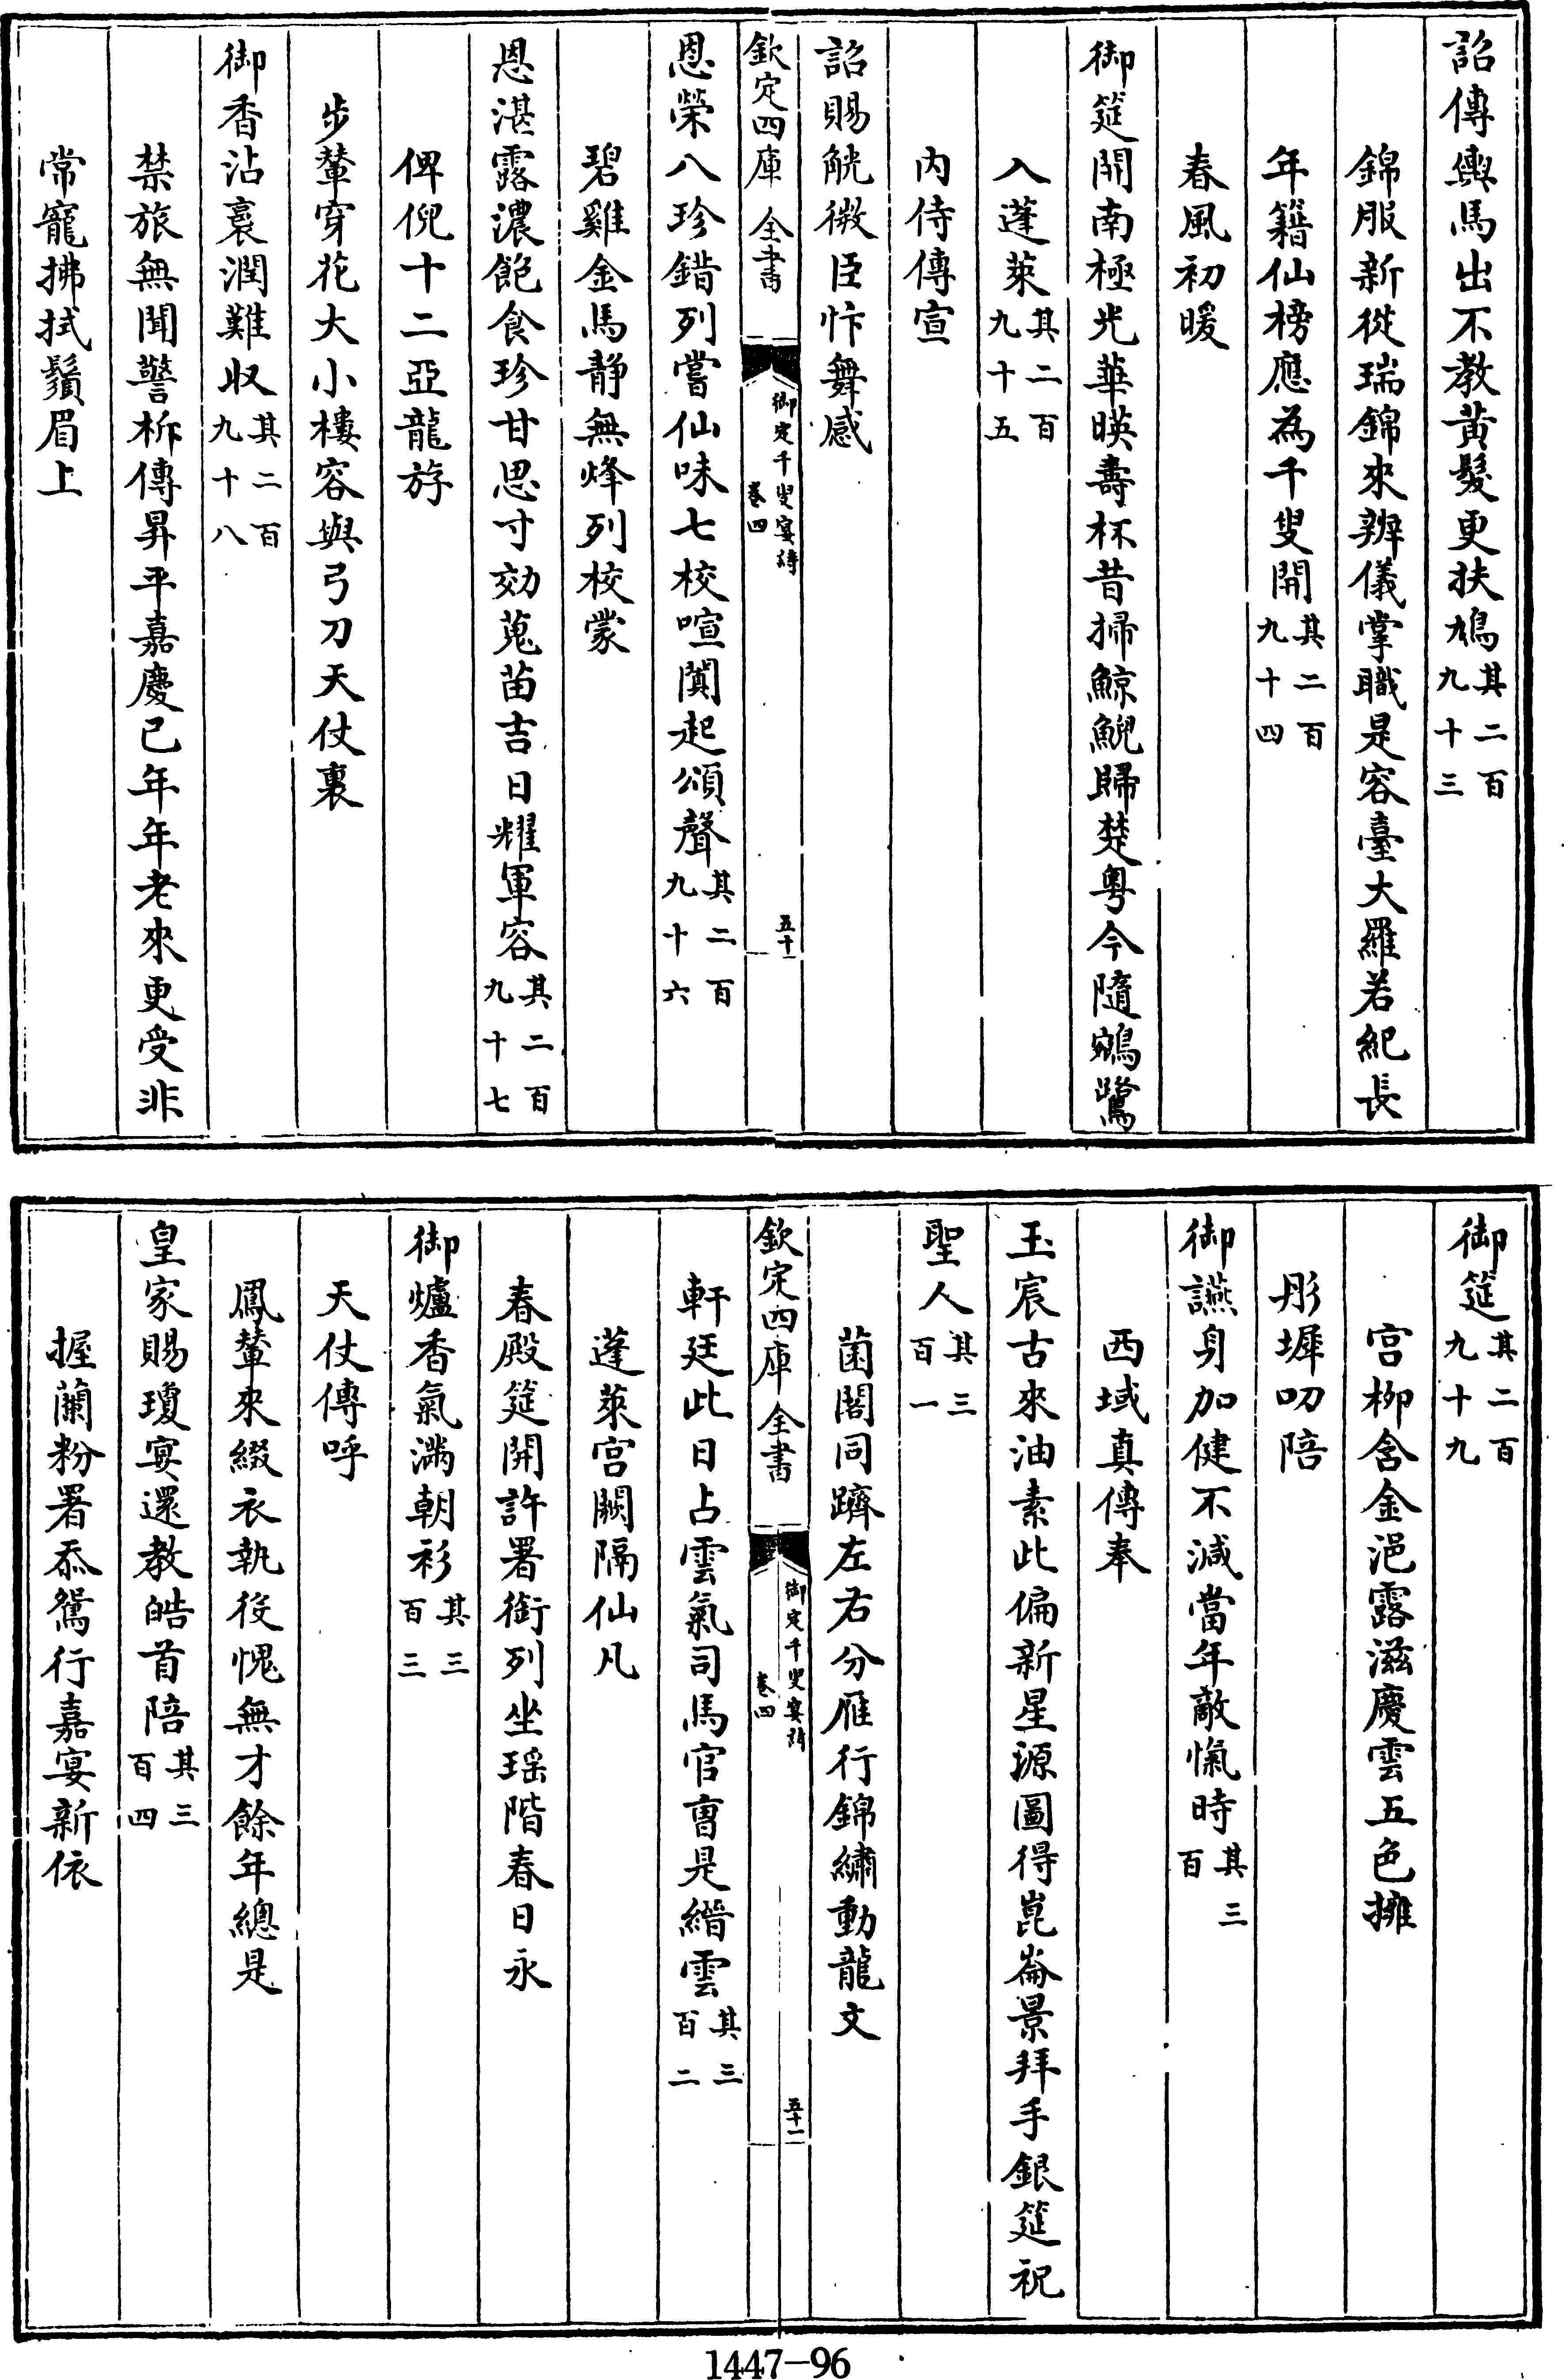 詔傳輿馬出不教黃髮更扶鳩其二百九十三
錦服新從瑞錦來辨儀掌職是容臺大羅若紀長
年籍仙榜應為千叟開其二百九十四
春風初暖
御筵開南極光華暎壽杯昔掃鯨鯢歸楚粵今隨鵷鷺
入蓬萊其二百九十五
内侍傳宣
詔賜觥微臣忭舞感
欽定四庫全書 御定千叟宴詩 卷四 五十
恩榮八珍錯列嘗仙味七校喧闐起頌聲其二百九十六
碧雞金馬静無烽列校蒙
恩湛露濃飽食珍甘思寸効蒐苗吉日耀軍容其二百九十七
俾倪十二亞龍斿
步輦穿花大小樓容與弓刀天仗裏
御香沾裛潤難收其二百九十八
禁旅無聞警柝傳昇平嘉慶已年年老來更受非
常寵拂拭鬚眉上
御筵其二百九十九
宫柳含金浥露滋慶雲五色擁
彤墀叨陪
御讌身加健不減當年敵愾時其三百
西域真傳奉
玉宸古來油素此偏新星源圖得崑崙景拜手銀筵祝
聖人其三百一
菌閣同躋左右分雁行錦繡動龍文
欽定四庫全書 御定千叟宴詩 卷四 五十一
軒廷此日占雲氣司馬官曹是縉雲其三百二
蓬萊宫闕隔仙凡
春殿筵開許署銜列坐瑶階春日永
御爐香氣滿朝衫其三百三
天仗傳呼
鳳輦來綴衣執役愧無才餘年總是
皇家賜瓊宴還教皓首陪其三百四
握蘭粉署忝鴛行嘉宴新依
1447-96